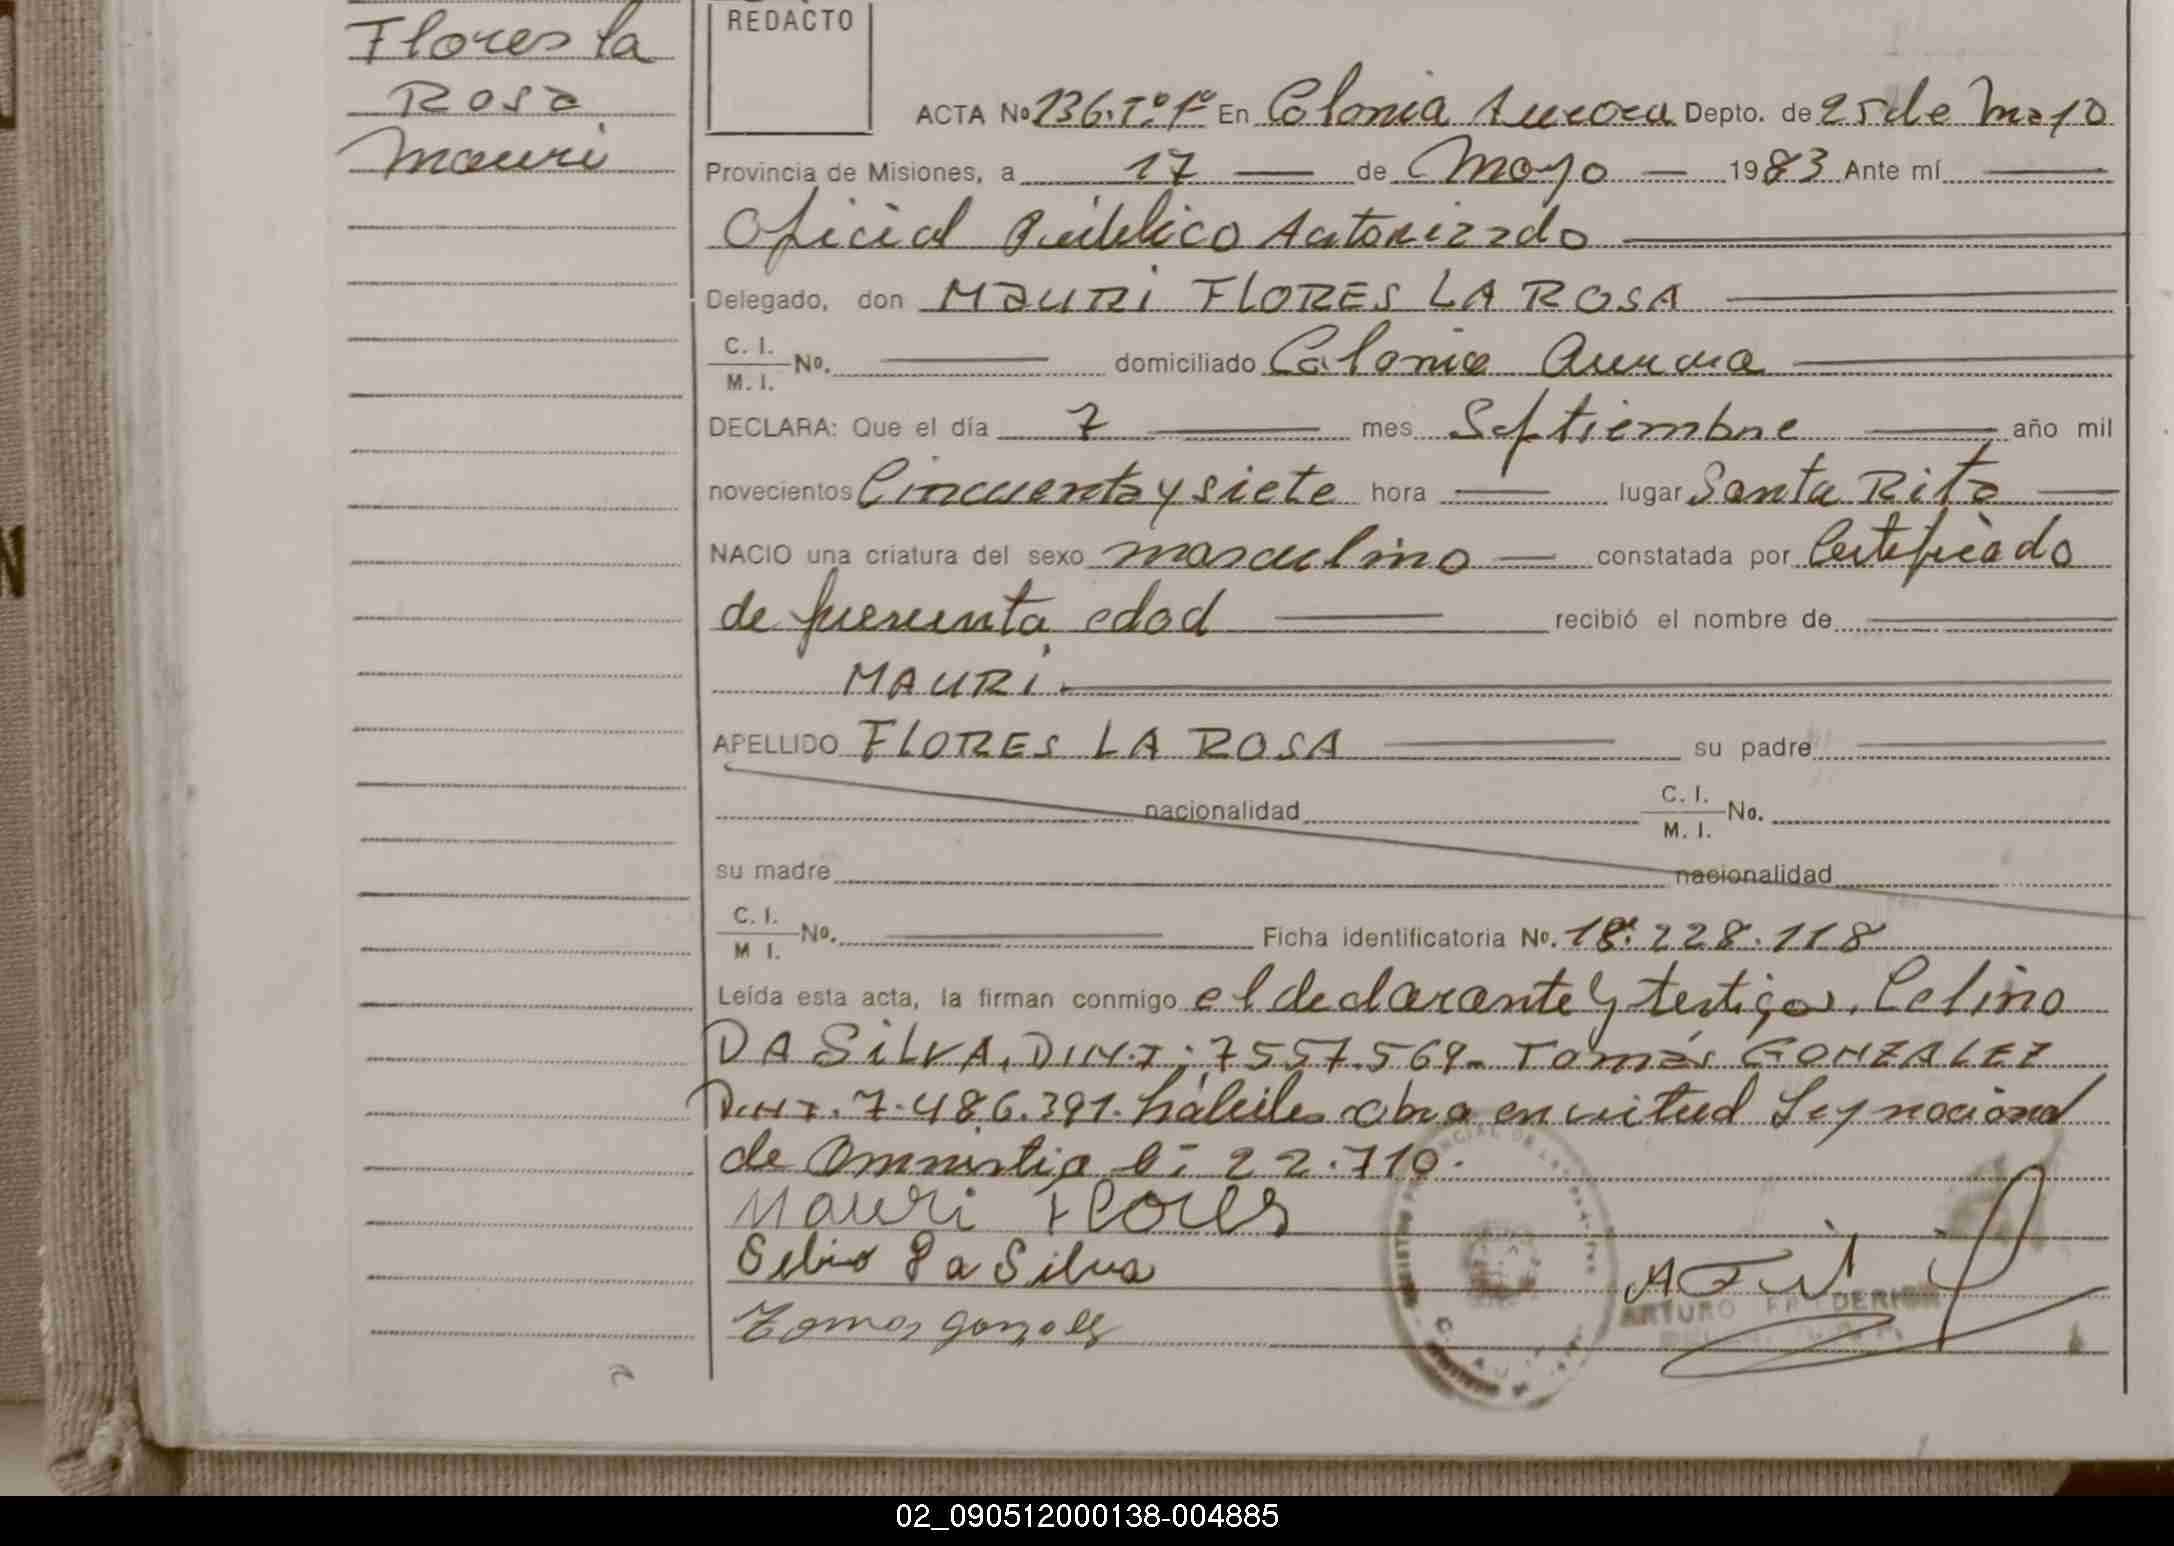 Flores la
Rosa
Mauri
REDACTO
ACTA No 136.Tº.1º En Colonia Aurora Depto. de 25 de Mayo
Provincia de Misiones, a 17 de Mayo 1983 Ante mí
Oficial Público Autorizado
Delegado, don MAURI FLORES LA ROSA
C. I.
M. I. No. domiciliado Colonia Aurora
DECLARA: Que el día 7 mes Septiembre año mil
novecientos Cincuenta y siete hora lugar Santa Rita
NACIO una criatura del sexo masculino constatada por Certificado
de presunta edad recibió el nombre de
MAURI.
APELLIDO FLORES LA ROSA su padre
nacionalidad C. I.
M. I. No.
su madre nacionalidad
C. I.
M I. No. Ficha identificatoria No. 18.228.118
Leída esta acta, la firman conmigo el declarante y testigos. Celino
DA SILVA, D.N.I: 7557.569- Tomás GONZALEZ
D.N.I. 7.486.391. hábiles obra en virtud Ley nacional
de Amnistia 22.710.
Mauri Flores
Da Silva
ARTURO
02_090512000138-004885